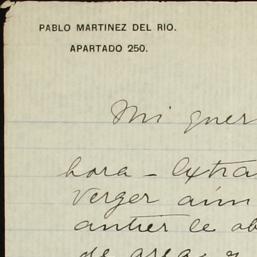 PABLO MARTINEZ DEL RIO.
APARTADO 250.
Mi quer
hora - Extra
Verger aún
antier le ob
de areas y